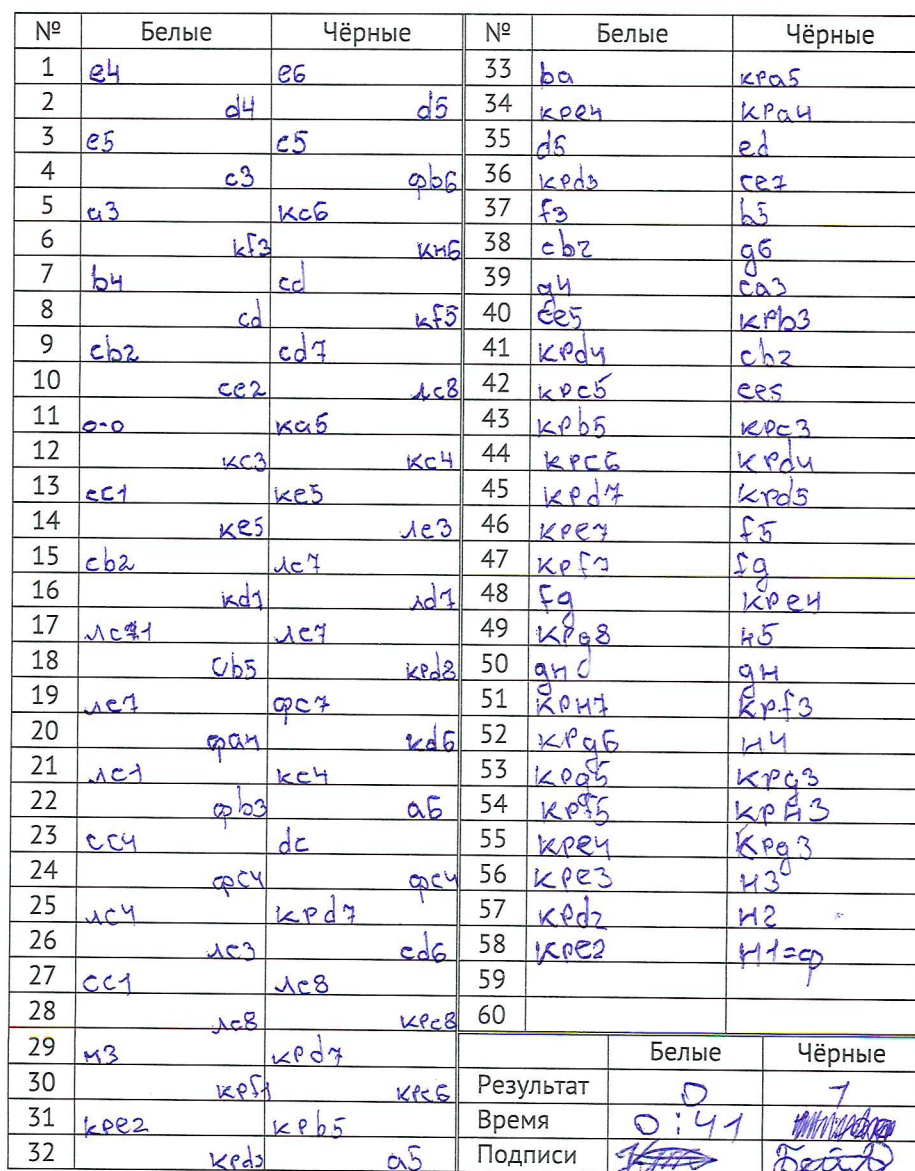 № Белые Чёрные
1 e4 e6
2 d4 d5
3 e5 c5
4 c3 фb6
5 a3 кc6
6 кf3 кн6
7 b4 cd
8 cd кf5
9 cb2 cd7
10 ce2 лc8
11 o-o кa5
12 кc3 кc4
13 cc1 кe5
14 кe5 лc3
15 cb2 лc7
16 кd7 лd7
17 лc1 лc7
18 cb5 крd8
19 лc7 фc7
20 фa4 кd6
21 лc1 кc4
22 фb3 a6
23 cc4 dc
24 фc4 фc4
25 лc4 крd7
26 лc3 cd6
27 cc1 лc8
28 лc8 крc8
29 н3 крd7
30 крf1 крc6
31 крe2 крb5
32 крd3 a5
№ Белые Чёрные
33 ba крa5
34 крe4 крa4
35 d5 ed
36 крd3 ce7
37 f3 b5
38 cb2 g6
39 g4 ca3
40 ce5 крb3
41 крd4 cb2
42 крc5 ce5
43 крb5 крc3
44 крc6 крd4
45 крd7 крd5
46 крe7 f5
47 крf7 fg
48 fg крe4
49 крg8 н5
50 gн gн
51 крн7 крf3
52 крg6 н4
53 крg5 крg3
54 крf5 крн3
55 крe4 крg3
56 крe3 н3
57 крd2 н2
58 крe2 н1=ф
59
60
Белые Чёрные
Результат 0 1
Время 0:41
Подписи